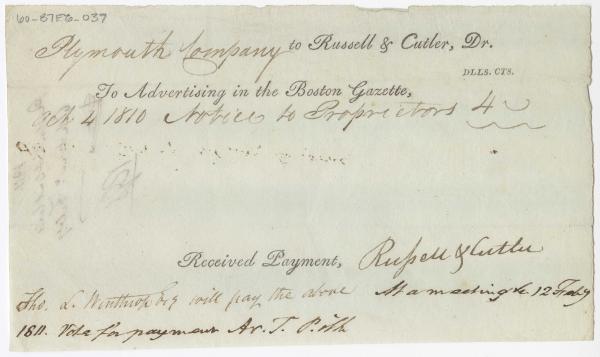 60-87E6-037
Plymouth Company to Russell & Cutler, Dr.
DLLS. CTS.
To Advertising in the Boston Gazette,
Oct 4 1810 Notice to Proprietors 4
Received Payment, Russell & Cutler
Tho. L. Winthrop Esq will pay the above At a meeting 12 Feby
1811. Vote for payment Ar. T.